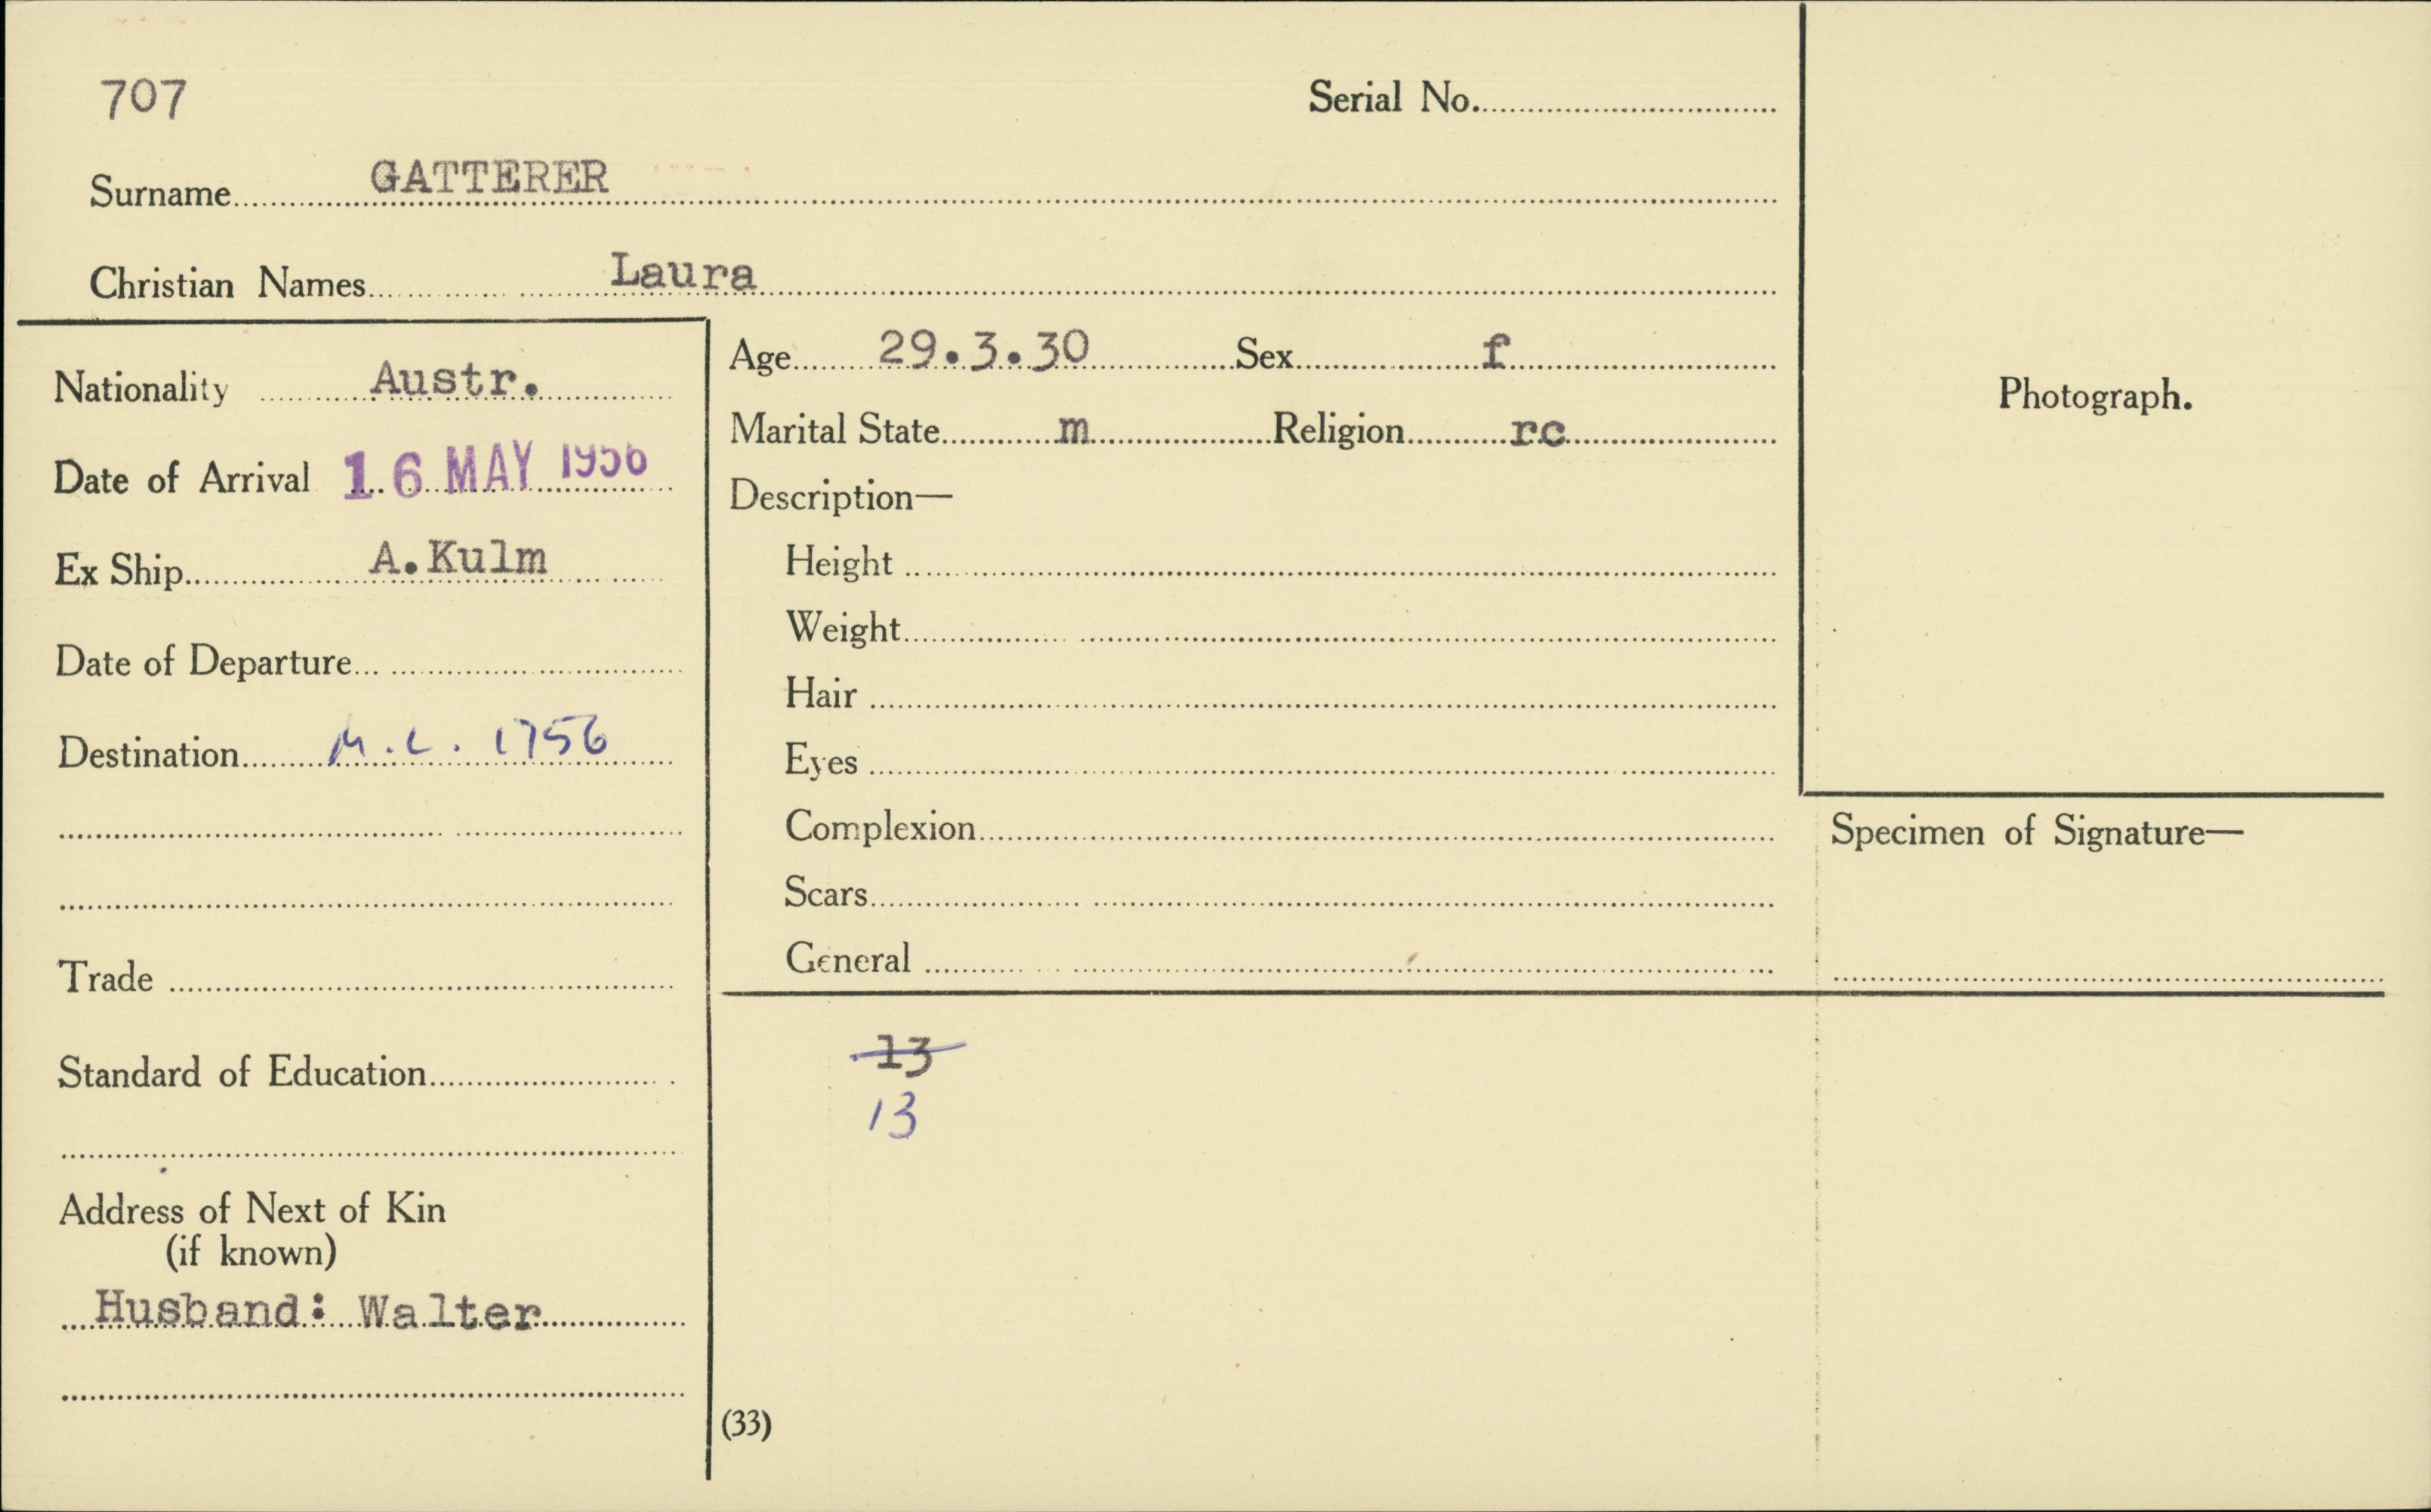 707
Serial No.
Surname GATTERER
Christian Names Laura
Nationality Austr.
Date of Arrival 16 MAY 1956
Ex Ship A.Kulm
Date of Departure
Destination M.L. 1756
Trade
Standard of Education
Address of Next of Kin
(if known)
Husband: Walter
Age 29.3.30 Sex f
Marital State m Religion rc
Description—
Height
Weight
Hair
Eyes
Complexion
Scars
General
13
13
(33)
Photograph.
Specimen of Signature—